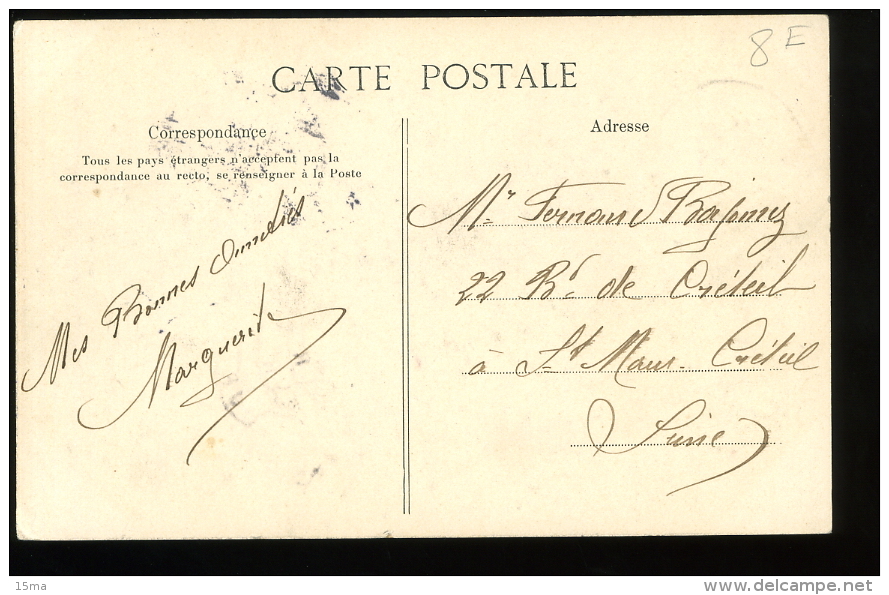 8E
CARTE POSTALE
Correspondance
Tous les pays étrangers n'acceptent pas la
correspondance au recto, se renseigner à la Poste
Mes Bonnes Amitiés
Marguerite
Adresse
Mr Fernand
22 Bd de Créteil
à St Maur-Créteil
Seine
15ma
delcampe.net